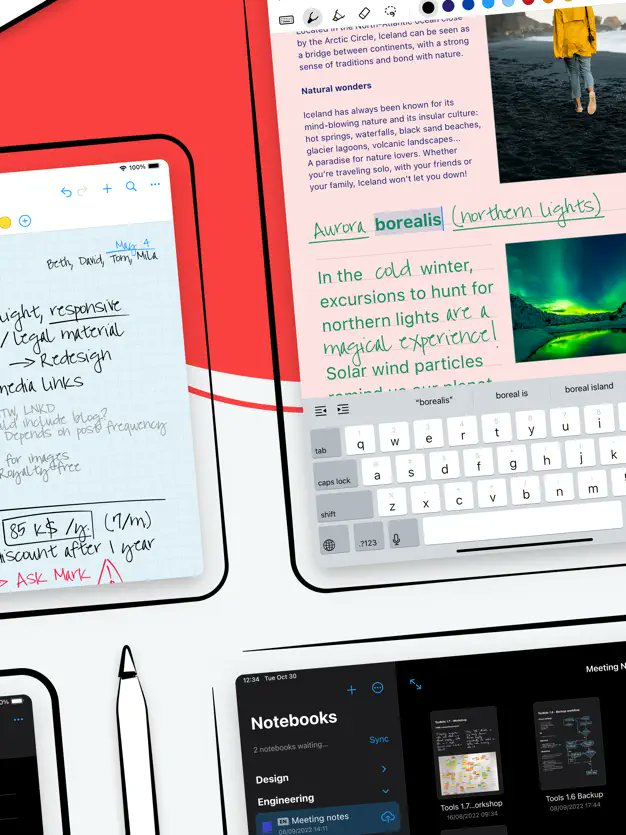 Located in the North-Atlantic ocean close
by the Arctic Circle, Iceland can be seen as
a bridge between continents, with a strong
sense of traditions and bond with nature.
Natural wonders
Iceland has always been known for its
mind-blowing nature and its insular culture:
hot springs, waterfalls, black sand beaches,
glacier lagoons, volcanic landscapes...
A paradise for nature lovers. Whether
you're traveling solo, with your friends or
your family, Iceland won't let you down!
Aurora borealis (northern lights)
In the cold winter,
excursions to hunt for
northern lights are a
magical experience!
Solar wind particles
remind us our planet
"borealis" boreal is boreal island
tab q w e r t y u i
caps lock a s d f g h j k
shift z x c v b n m
.?123
100%
May 4
Beth, David, Tom, Mila
light, responsive
/ legal material
→ Redesign
media links
TW LNKD
include blog?
Depends on post frequency
for images
Royalty-free
85 k$ /y. (7/m)
discount after 1 year
→ Ask Mark !
0%
12:34 Tue Oct 30
Notebooks
2 notebooks waiting... Sync
Design
Engineering
EN Meeting notes
06/09/2022 14:11
Meeting N
Toolkits 1.7 - Workshop
Tools 1.7...orkshop
16/08/2022 09:34
Toolkits 1.6 - Backup workflow
Tools 1.6 Backup
08/09/2022 17:44